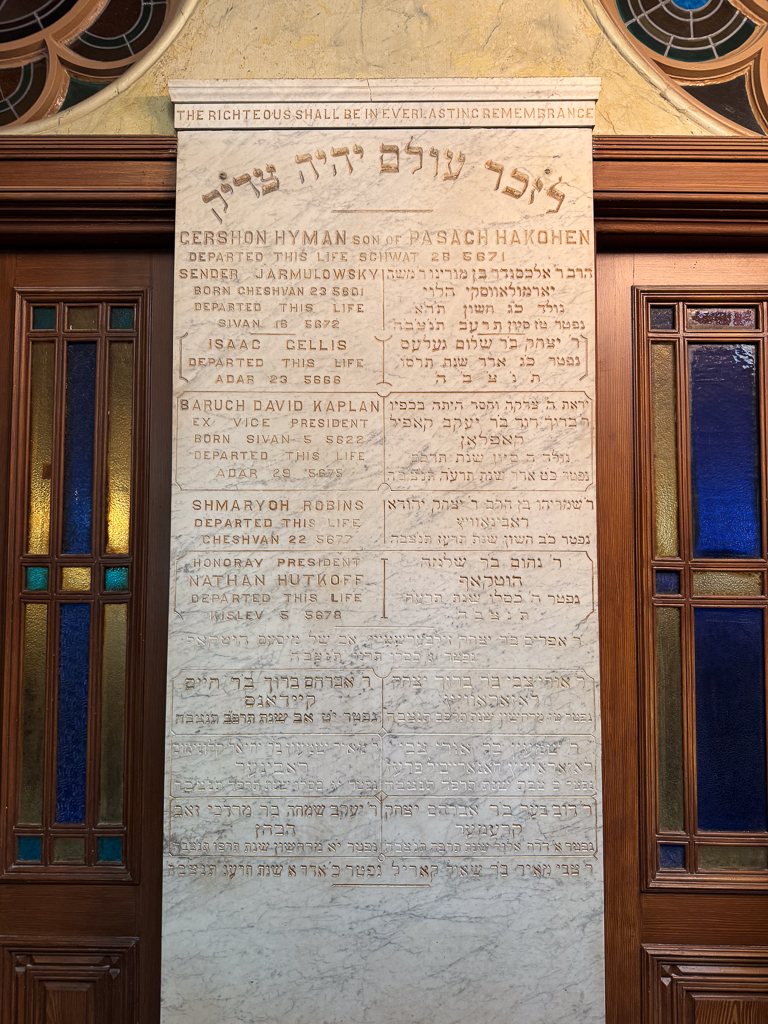 THE RIGHTEOUS SHALL BE IN EVERLASTING REMEMBRANCE
לזכר עולם יהיה צדיק
GERSHON HYMAN SON OF PASACH HAKOHEN
DEPARTED THIS LIFE SCHWAT 28 5671
SENDER JARMULOWSKY
BORN CHESHVAN 23 5601
DEPARTED THIS LIFE
SIVAN 16 5672
הרב ר' אלכסנדר בן מורינו ר משה
יארמולאווסקי הלוי
נולד כג חשון תרא
נפטר טז סיון תרעב תנצבה
ISAAC GELLIS
DEPARTED THIS LIFE
ADAR 23 5666
ר' יצחק בר שלום געלעס
נפטר כג אדר שנת תרסו
ת נ צ ב ה
BARUCH DAVID KAPLAN
EX VICE PRESIDENT
BORN SIVAN 5 5622
DEPARTED THIS LIFE
ADAR 29 5675
יראת ה צדקה וחסד היתה בכפיו
ר ברוך דוד בר יעקב קאפיל
קאפלאן
נולד ה סיון שנת
נפטר כט אדר שנת תרעה תנצבה
SHMARYOH ROBINS
DEPARTED THIS LIFE
CHESHVAN 22 5677
ר' שמריהו בן הרב ר יצחק יהודא
ראבינאוויץ
נפטר כב חשון שנת תרעז תנצבה
HONORAY PRESIDENT
NATHAN HUTKOFF
DEPARTED THIS LIFE
KISLEV 5 5678
ר' נחום בר שלמה
הוטקאף
נפטר ה' כסלו שנת תרעח
ת נ צ ב ה
ר אפרים בר יצחק אב של
נפטר כסלו תנצבה
ר אורי צבי בר ברוך יצחק
נפטר מרחשון שנת תרפב תנצבה
ר' אברהם ברוך בר חיים
קיידאנס
נפטר יט אב שנת תרפב תנצבה
אורי צבי
נפטר טבת שנת תנצבה
ר מאיר שמעון בר
ראבינער
נפטר כסלו שנת תנצבה
ר דוב בער בר אברהם יצחק
קרעמער
נפטר אלול שנת תנצבה
ר' יעקב שמחה בר מרדכי זאב
נפטר יא מרחשון שנת תרפו תנצבה
ר צבי מאיר בר שאול קאריל נפטר כ אדר א שנת תנצבה